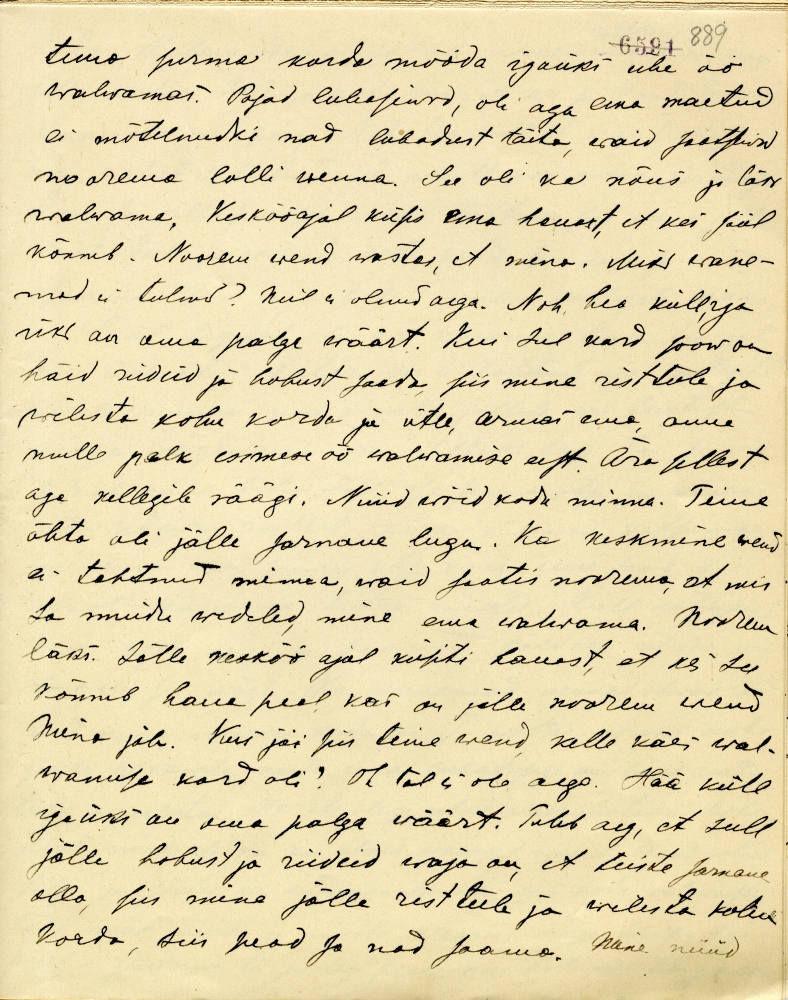 6521 889
tema surma korda mööda igaüks ühe öö
walwamas. Pojad lubasiwad, oli aga ema maetud
ei mõtelnudki nad lubadust täita, waid saatsiwad
noorema lolli wenna. See oli ka nõus ja läks
walwama. Keskööajal küsis ema hauast, et kes sääl
kõnnib. Noorem wend wastas, et mina. Miks wane-
mad ei tulnud? Neil ei olnud aega. Noh, hea küll, iga
üks on oma palga wäärt. Kui sul kord soow on
häid riideid ja hobust saada, siis mine ristteele ja
wilista kolm korda ja ütle, armas ema, anna
mulle palk esimese öö walwamise eest. Ära sellest
aga kellegile räägi. Nüüd wõid kodu minna. Teine
õhta oli jälle sarnane lugu. Ka keskmine wend
ei tahtnud minna, waid saatis noorema, et mis
sa muidu wedeled, mine ema walwama. Noorem
läks. Jälle kesköö ajal küsiti hauast, et kes see
kõnnib haua peal kas on jälle noorem wend
Mina jah. Kus jäi siis teine wend, kelle käes wal-
wamise kord oli? Oh tal ei ole aega. Hää küll
igaüks on oma palga wäärt. Tuleb aeg, et sull
jälle hobust ja riideid waja on, et teiste sarnane
olla, siis mine jälle ristteele ja wilista kolm
korda, siis pead sa nad saama. Mine nüüd